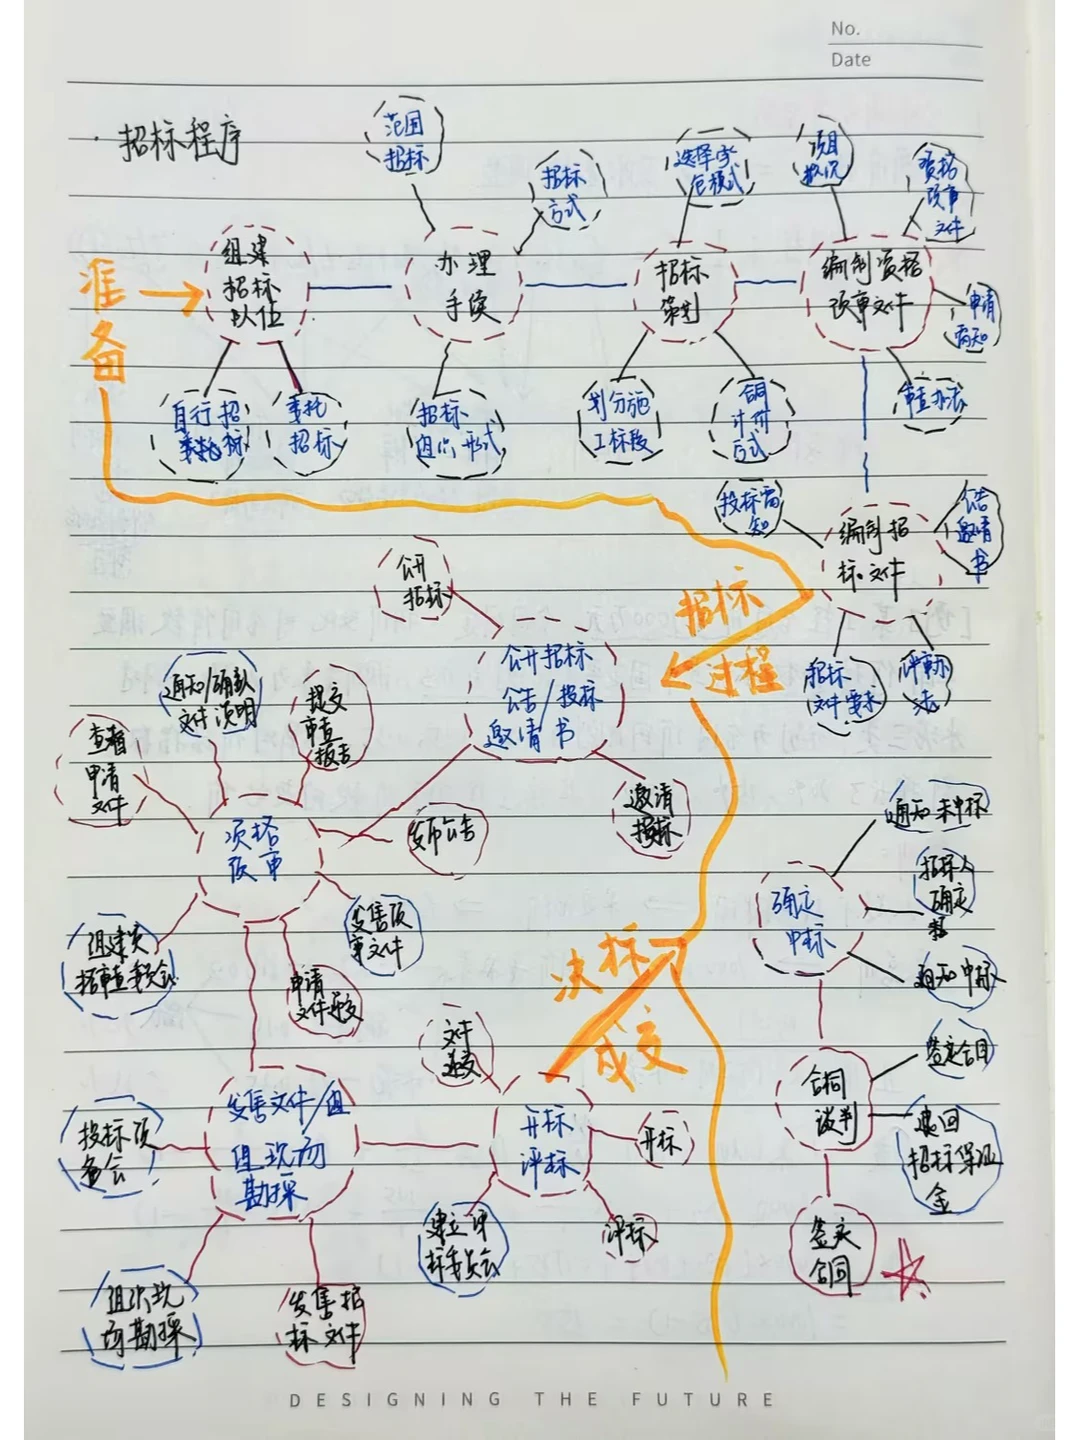 No.
Date
招标程序
准
备
组建
招标
办理
手续
招标
策划
编制资格
预审文件
范围
招标
招标
方式
选择承
包模式
项目
概况
资格
预审
文件
申请
需知
审查办法
自行招
标
委托
招标
招标
组织形式
划分施
工标段
合同
计价
方式
投标需
知
编制招
标文件
公告
邀请
书
招标
文件要求
评标办
法
招标
过程
公开
招标
公开招标
公告/投标
邀请书
邀请
投标
发布公告
通知/确认
文件说明
提交
审查
报告
查看
申请
文件
资格
预审
组建资
格审查委员会
申请
文件递交
发售预
审文件
决标
成交
确定
中标
通知未中标
招标人
确定
通知中标
合同
谈判
签定合同
退回
招标保证
金
签定
合同
文件
递交
开标
评标
开标
评标
建立评
标委员会
发售文件/组
组现场
勘探
投标预
备会
组织现
场勘探
发售招
标文件
DESIGNING THE FUTURE